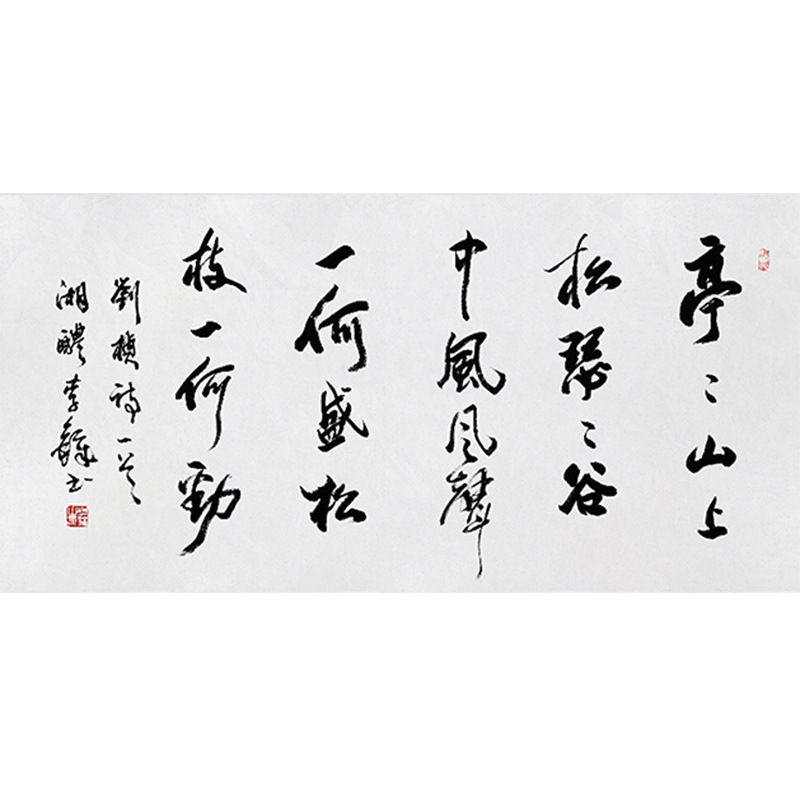 亭〻山上
松瑟〻谷
中風風聲
一何盛松
枝一何勁
劉楨诗一首
湘醴李鐸书